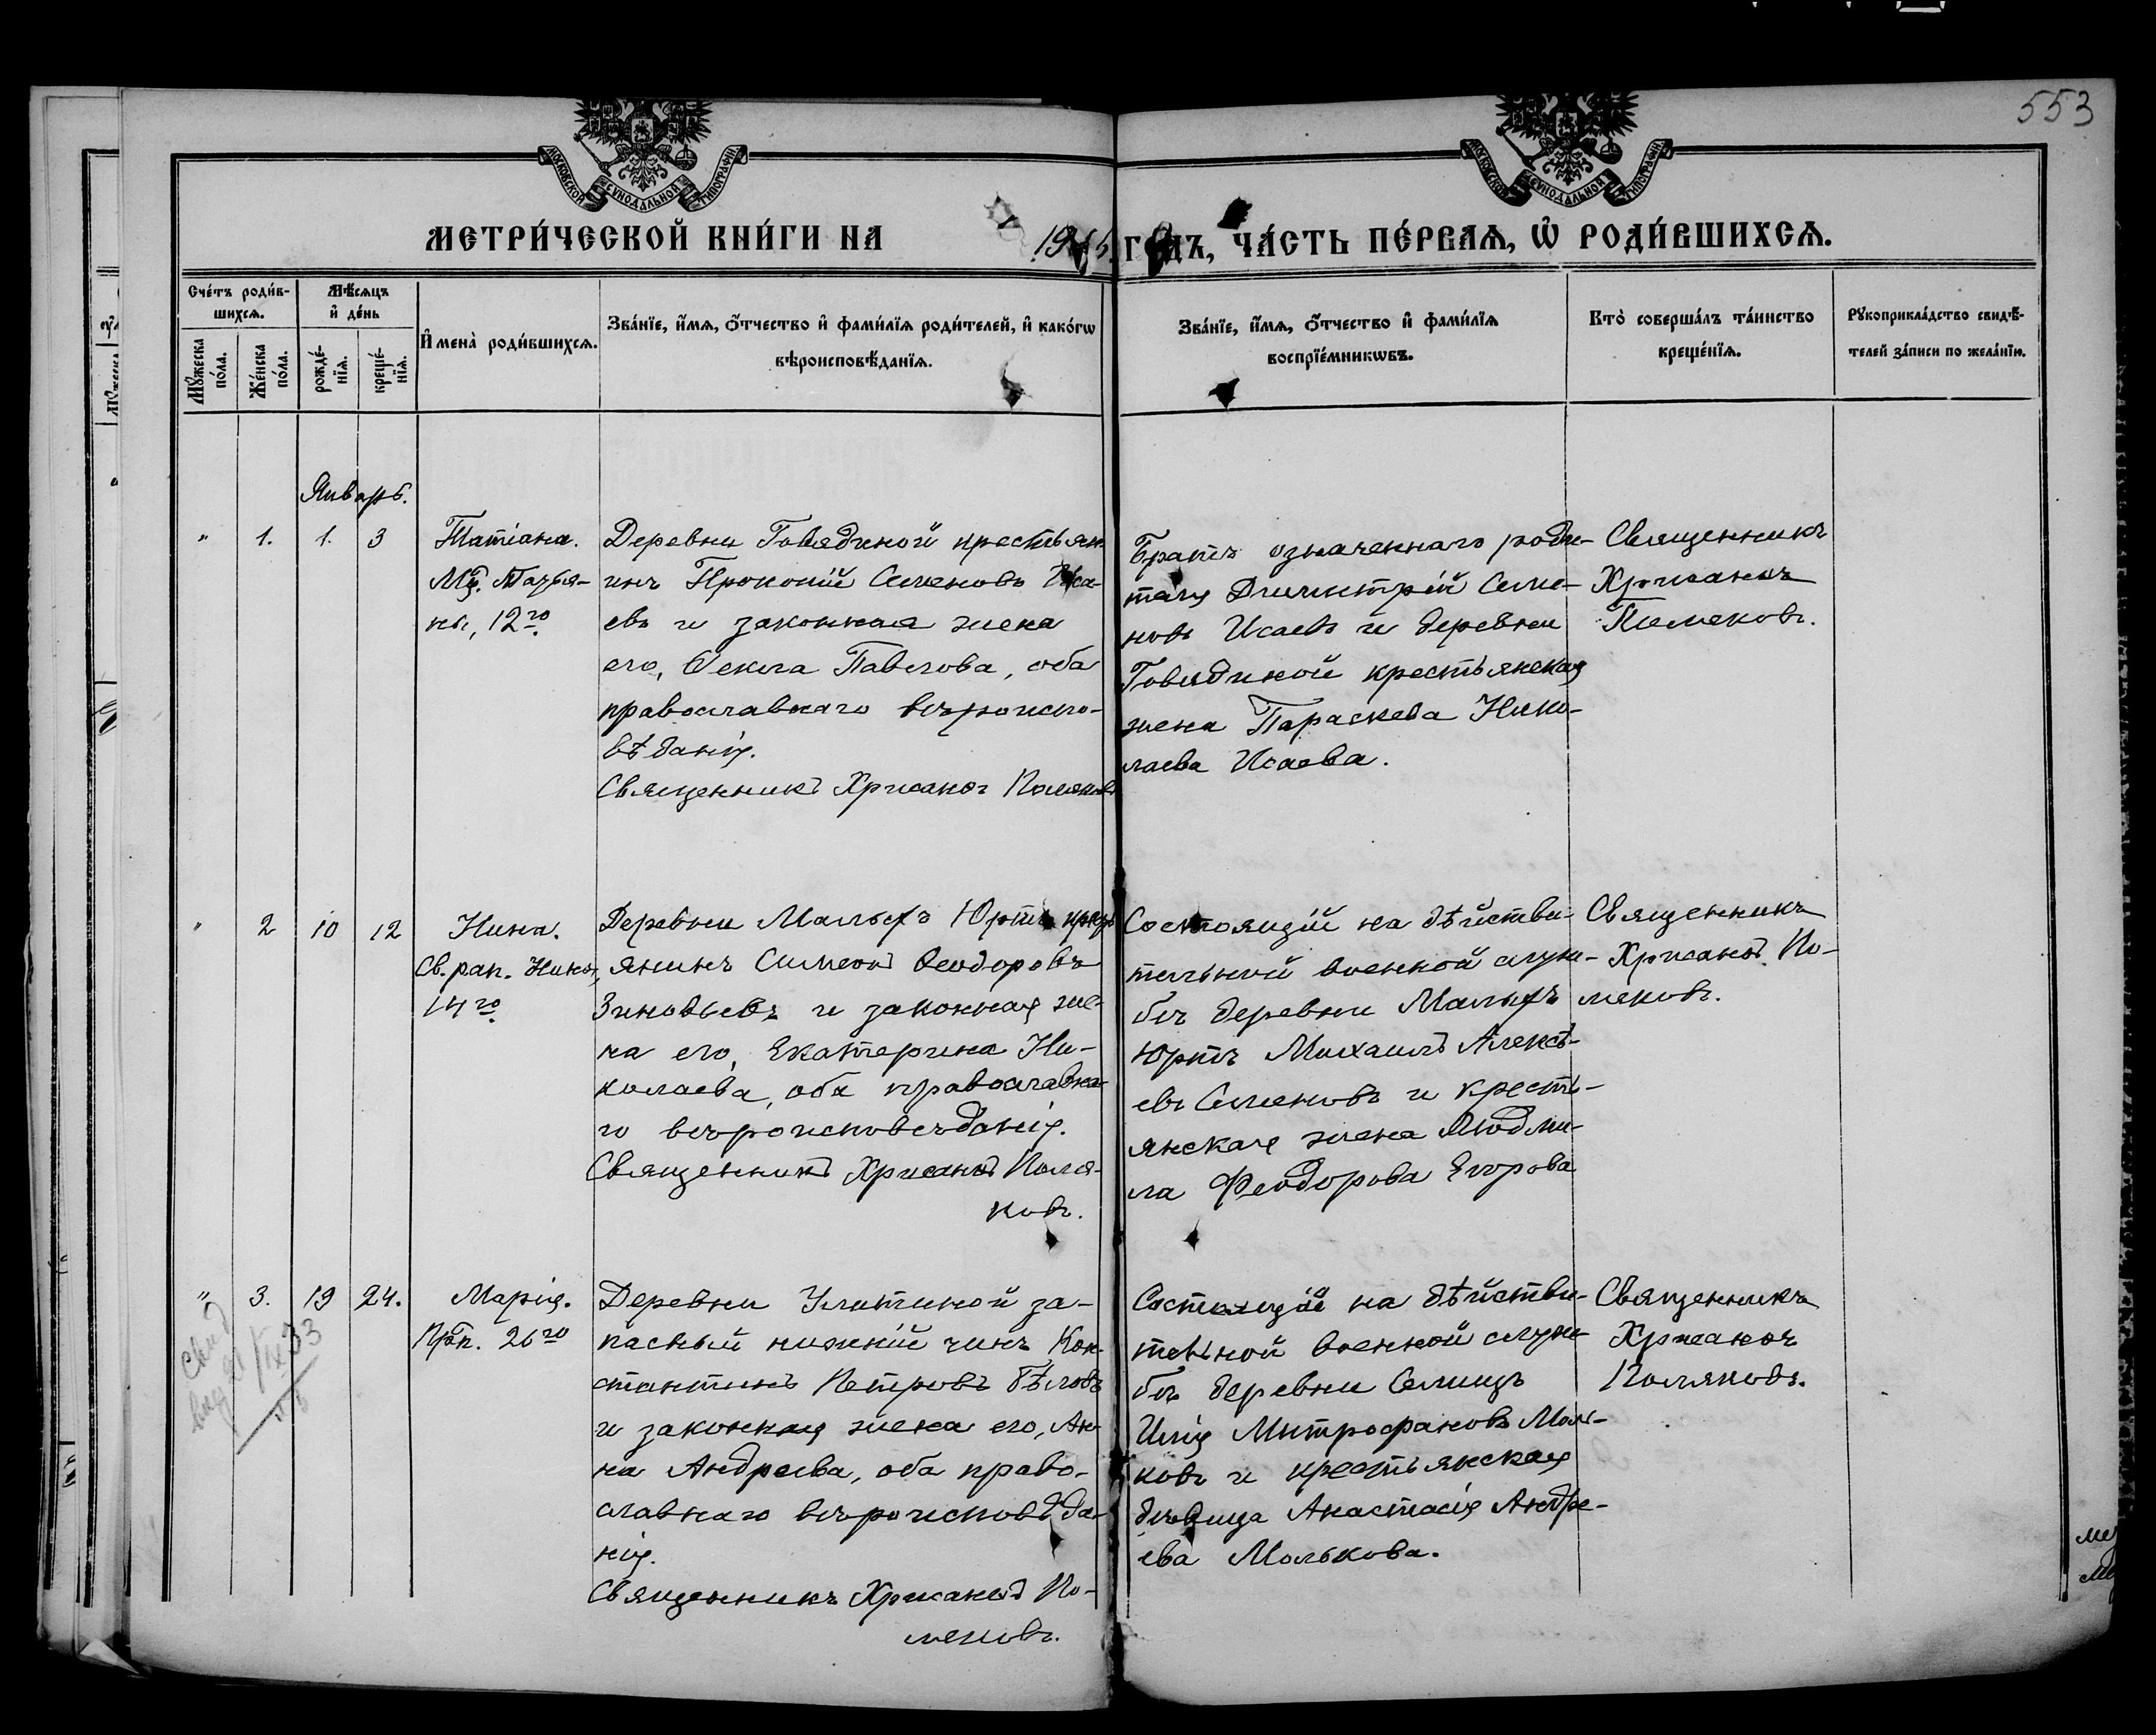 553
МОСКОВСКОЙ СѴНОДАЛЬНОЙ ТИПОГРАФІИ
МОСКОВСКОЙ СѴНОДАЛЬНОЙ ТИПОГРАФІИ
МЕТРИ́ЧЕСКОЙ КНИ́ГИ НА 1915 ГОДЪ, ЧА́СТЬ ПЕ́РВАѦ, Ѡ҆ РОДИ́ВШИХСѦ.
Сче́тъ роди́в-
шихсѧ.
Мѣ́сѧцъ
и҆ де́нь
Мꙋ́жеска
по́ла.
Же́нска
по́ла.
рожде́-
нїѧ.
креще́-
нїѧ.
И҆мена̀ роди́вшихсѧ.
Зва́нїе, и҆́мѧ, ѻ҆́тчество и҆ фами́лїѧ роди́телей, и҆ како́гѡ
вѣроисповѣ́данїѧ.
Зва́нїе, и҆́мѧ, ѻ҆́тчество и҆ фами́лїѧ
воспрїе́мникѡвъ.
Кто̀ соверша́лъ та́инство
креще́нїѧ.
Рꙋкоприкла́дство свидѣ́-
телей за́писи по жела́нїю.
Январь.
" 1. 1. 3
Татіана.
Мц. Татья-
ны, 12го
Деревни Говядиной крестьян
инъ Прокопій Семеновъ Иса-
евъ и законная жена
его, Ѳекла Павлова, оба
православнаго вѣроиспо-
вѣданія.
Священникъ Хрисанѳъ Поляковъ
Братъ означеннаго роди-
теля Димитрій Семе-
новъ Исаевъ и деревни
Говядиной крестьянская
жена Параскева Нико-
лаева Исаева.
Священникъ
Хрисанѳъ
Поляковъ.
" 2 10 12
Нина.
Св. рап. Нины,
14го
Деревни Малыхъ Юртъ кресть
янинъ Симеонъ Ѳеодоровъ
Зиновьевъ и законная же-
на его, Екатерина Ни-
колаева, оба православна-
го вѣроисповѣданія.
Священникъ Хрисанѳъ Поля-
ковъ.
Состоящій на дѣйстви-
тельной военной служ-
бѣ деревни Малыхъ
Юртъ Михаилъ Алексѣ-
евъ Семеновъ и кресть-
янская жена Людми-
ла Феодорова Егорова
Священникъ
Хрисанѳъ По-
ляковъ.
" 3. 19 24.
Марія.
Прп. 26го
Деревни Улитиной за-
пасный нижній чинъ Кон-
стантинъ Петровъ Бѣловъ
и законная жена его, Ан-
на Андреева, оба право-
славнаго вѣроисповѣда-
нія.
Священникъ Хрисанѳъ По-
ляковъ.
Состоящій на дѣйстви-
тельной военной служ-
бѣ деревни Селищъ
Илія Митрофановъ Моль-
ковъ и крестьянская
дѣвица Анастасія Андре-
ева Молькова.
Священникъ
Хрисанѳъ
Поляковъ.